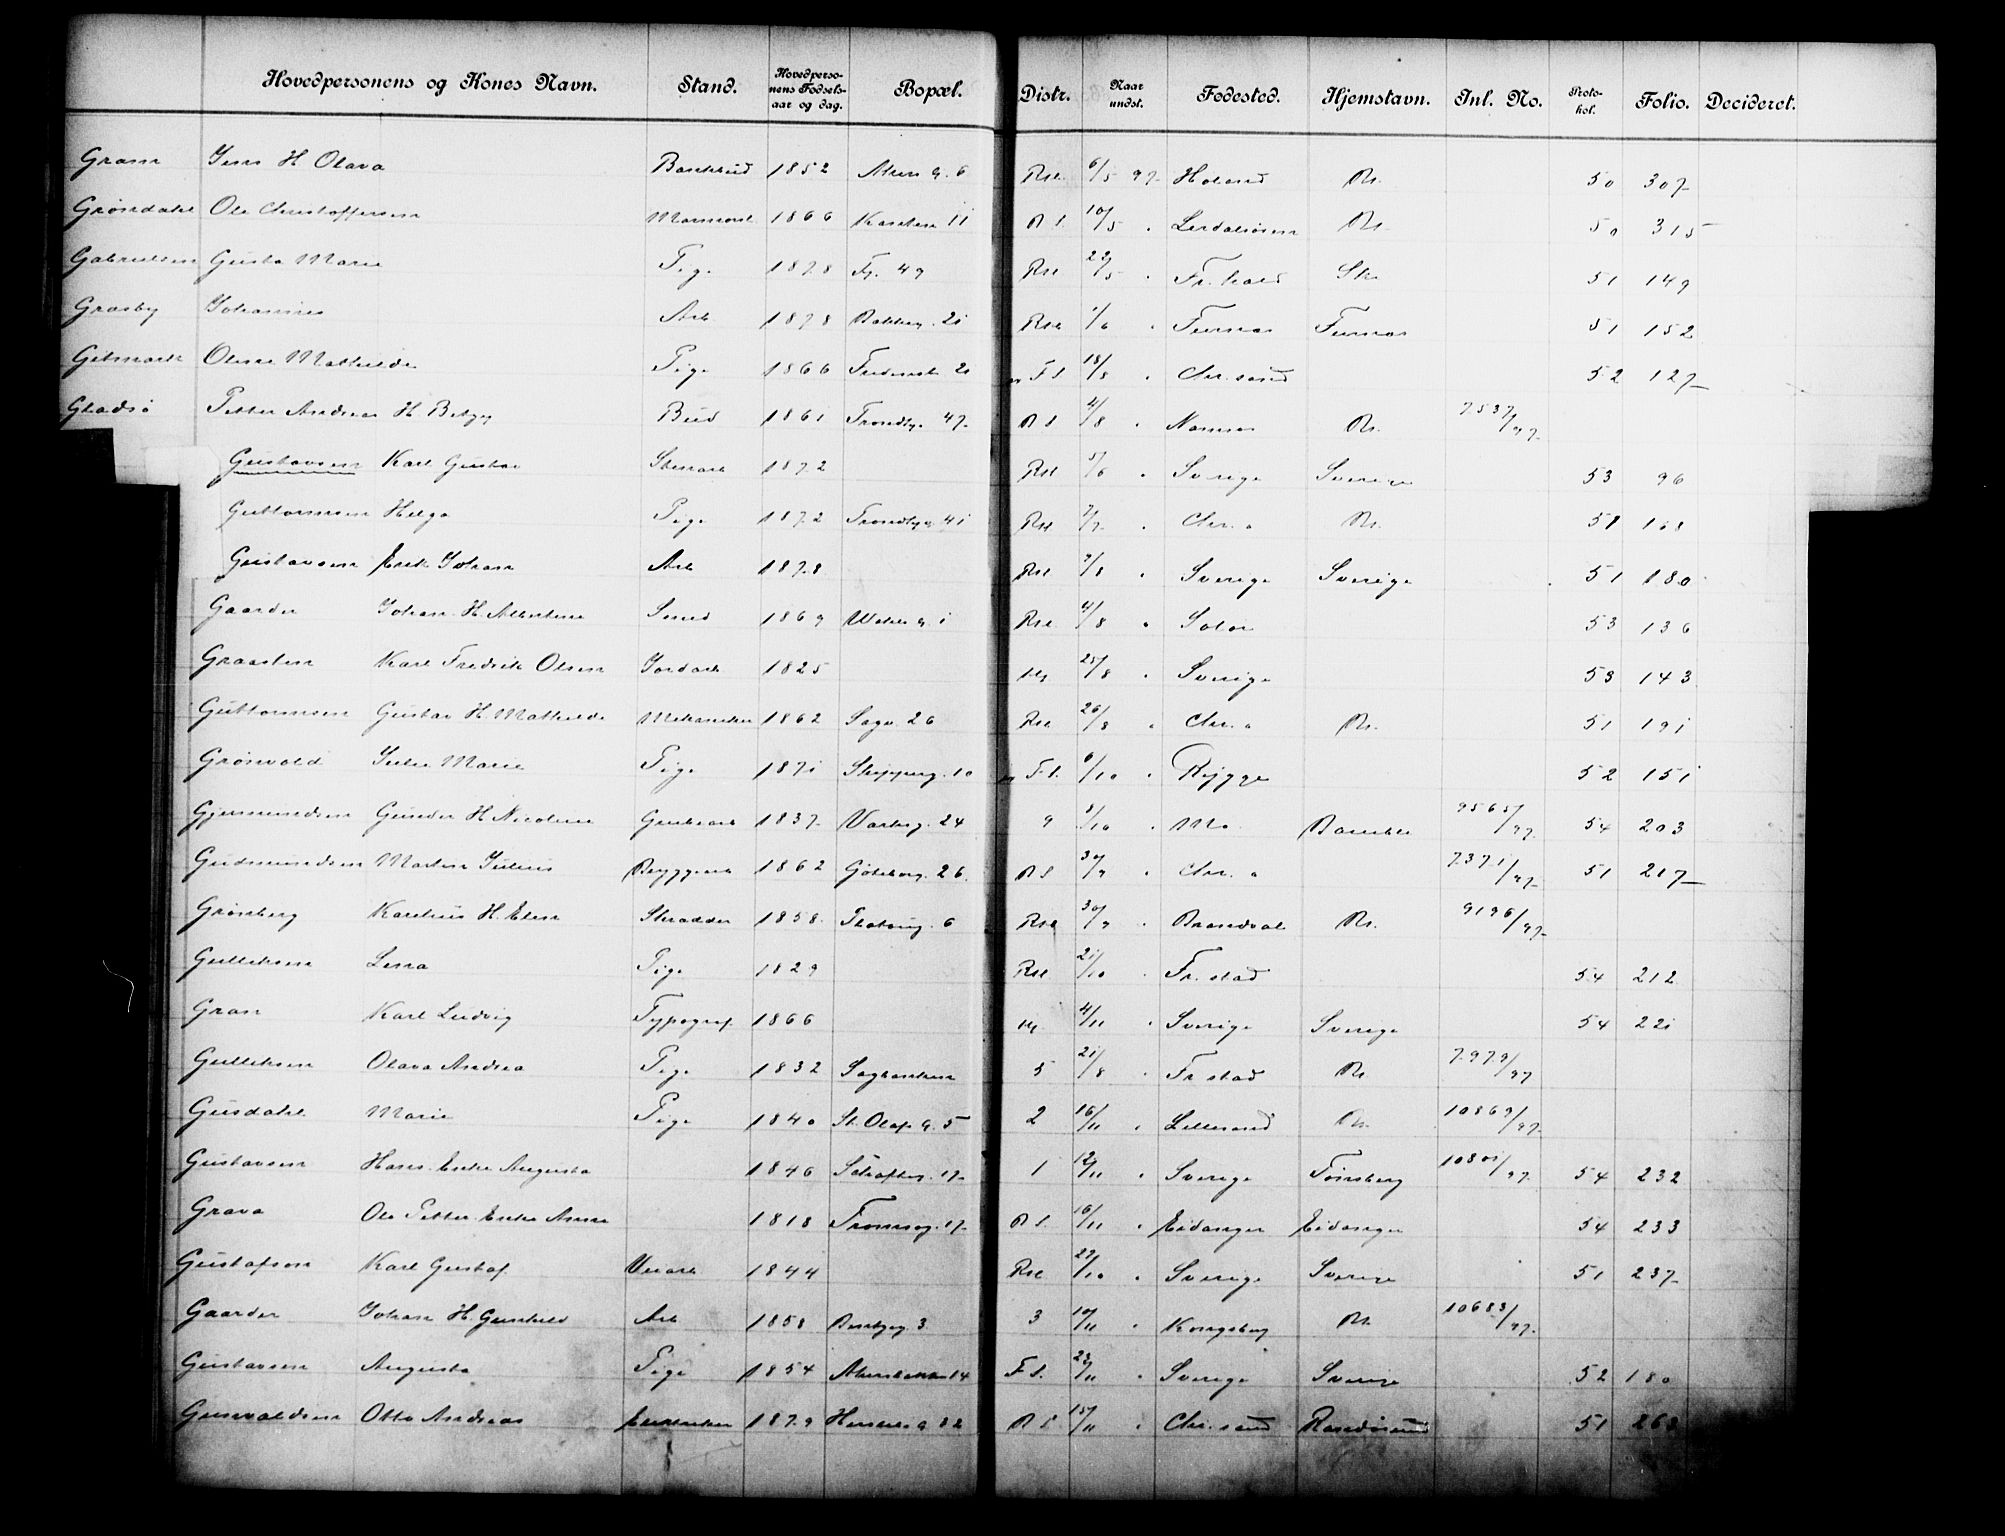 Hovedpersonens og Kones Navn. Stand. Hovedpersonens Fødselsaar og dag. Bopæl. Distr. Naar undst. Fødested. Hjemstavn. Inl. No. Protokol. Folio. Decideret.
Gram Jens H Olava Bankbud 1852 Akers g. 6 Rst. 6/5 97 Høland Kr. 50 307
Grøndahl Ole Christoffersen 1866 11 R S. 10/5 " Lerdalsøren Kr. 50 315
Gabrielsen Gusta Marie Pige 1878 Fr. 49 Rst 22/5 " Fr.hald Sk. 51 149
Græsby Johannes Arb 1878 Bakkeg. 21 Rst 1/6 " Furnæs Furnæs 51 152
Gitmark Oline Mathilde Pige 1866 21 F S 18/8 " Chr.sand 52 127
Gladsø Petter Andreas H Betzy Bud 1861 Trondhj. 47 R S 4/8 " Namsos Kr. 7537/97
Gustavsen Karl Gustav Stenarb 1872 Rst 5/6 " Sverige Sverige 53 96
Guttormsen Helga Pige 1872 Trondhj g. 41 Rst 2/7 " Chr.a Kr. 51 168
Gustavsen Erik Johan Arb 1878 Rst 7/8 " Sverige Sverige 51 180
Gaarder Johan H. Albertine Smed 1869 g. 1 Rst 4/8 " Solør 53 136
Graasten Karl Fredrik Olsen Jordarb 1825 25/8 " Sverige 53 143
Guttormsen Gustav H Mathilde Mekaniker 1862 Sagv. 26 Rst 26/8 " Chr.a Kr. 51 191
Grønvold Julie Marie Pige 1871 Skipperg. 10 F S. 6/10 " Rygge 52 151
Gjermundsen Gunder H Nicoline Grubearb 1837 Vorbrg. 24 9 8/10 " Mo Bamble 9565/97 54 203
Gudmundsen Martin Julius Bryggearb 1862 Gøteborg. 26 R S 30/9 " Chr.a 7371/97 51 217
Grønberg Karelius H. Elen Skrædder 1858 6 Rst 30/9 " Brandval Kr. 9196/97
Gulliksen Lena Pige 1829 Rst 21/10 " Fr.stad 54 212
Gran Karl Ludvig Typograf 1866 4/11 " Sverige Sverige 54 221
Gulliksen Olava Andrea Pige 1832 Sagbanken 5 21/8 " Fr stad Kr. 7979/97
Gusdahl Marie Pige 1840 St. Olafs g. 5 2 16/11 " Lillesand Kr. 10869/97
Gustavsen Hans Enke Augusta 1846 17 1 12/11 " Sverige Tønsberg 10801/97 54 232
Grava Ole Petter Enke Anna 1818 Tromsøg. 17 R S. 16/11 " Eidanger Eidanger 54 233
Gustafson Karl Gustaf Vevarb 1844 Rst 22/10 " Sverige Sverige 51 237
Gaarder Johan H. Gunhild Arb 1858 3 3 10/11 " Kongsberg Kr. 10683/97
Gustavsen Augusta Pige 1854 Akersbakken 14 F S. 23/11 " Sverige Sverige 52 180
Gunvaldsen Otto Andreas 1879 g 22 R S. 15/11 " Chr.sand Randøsund 51 263